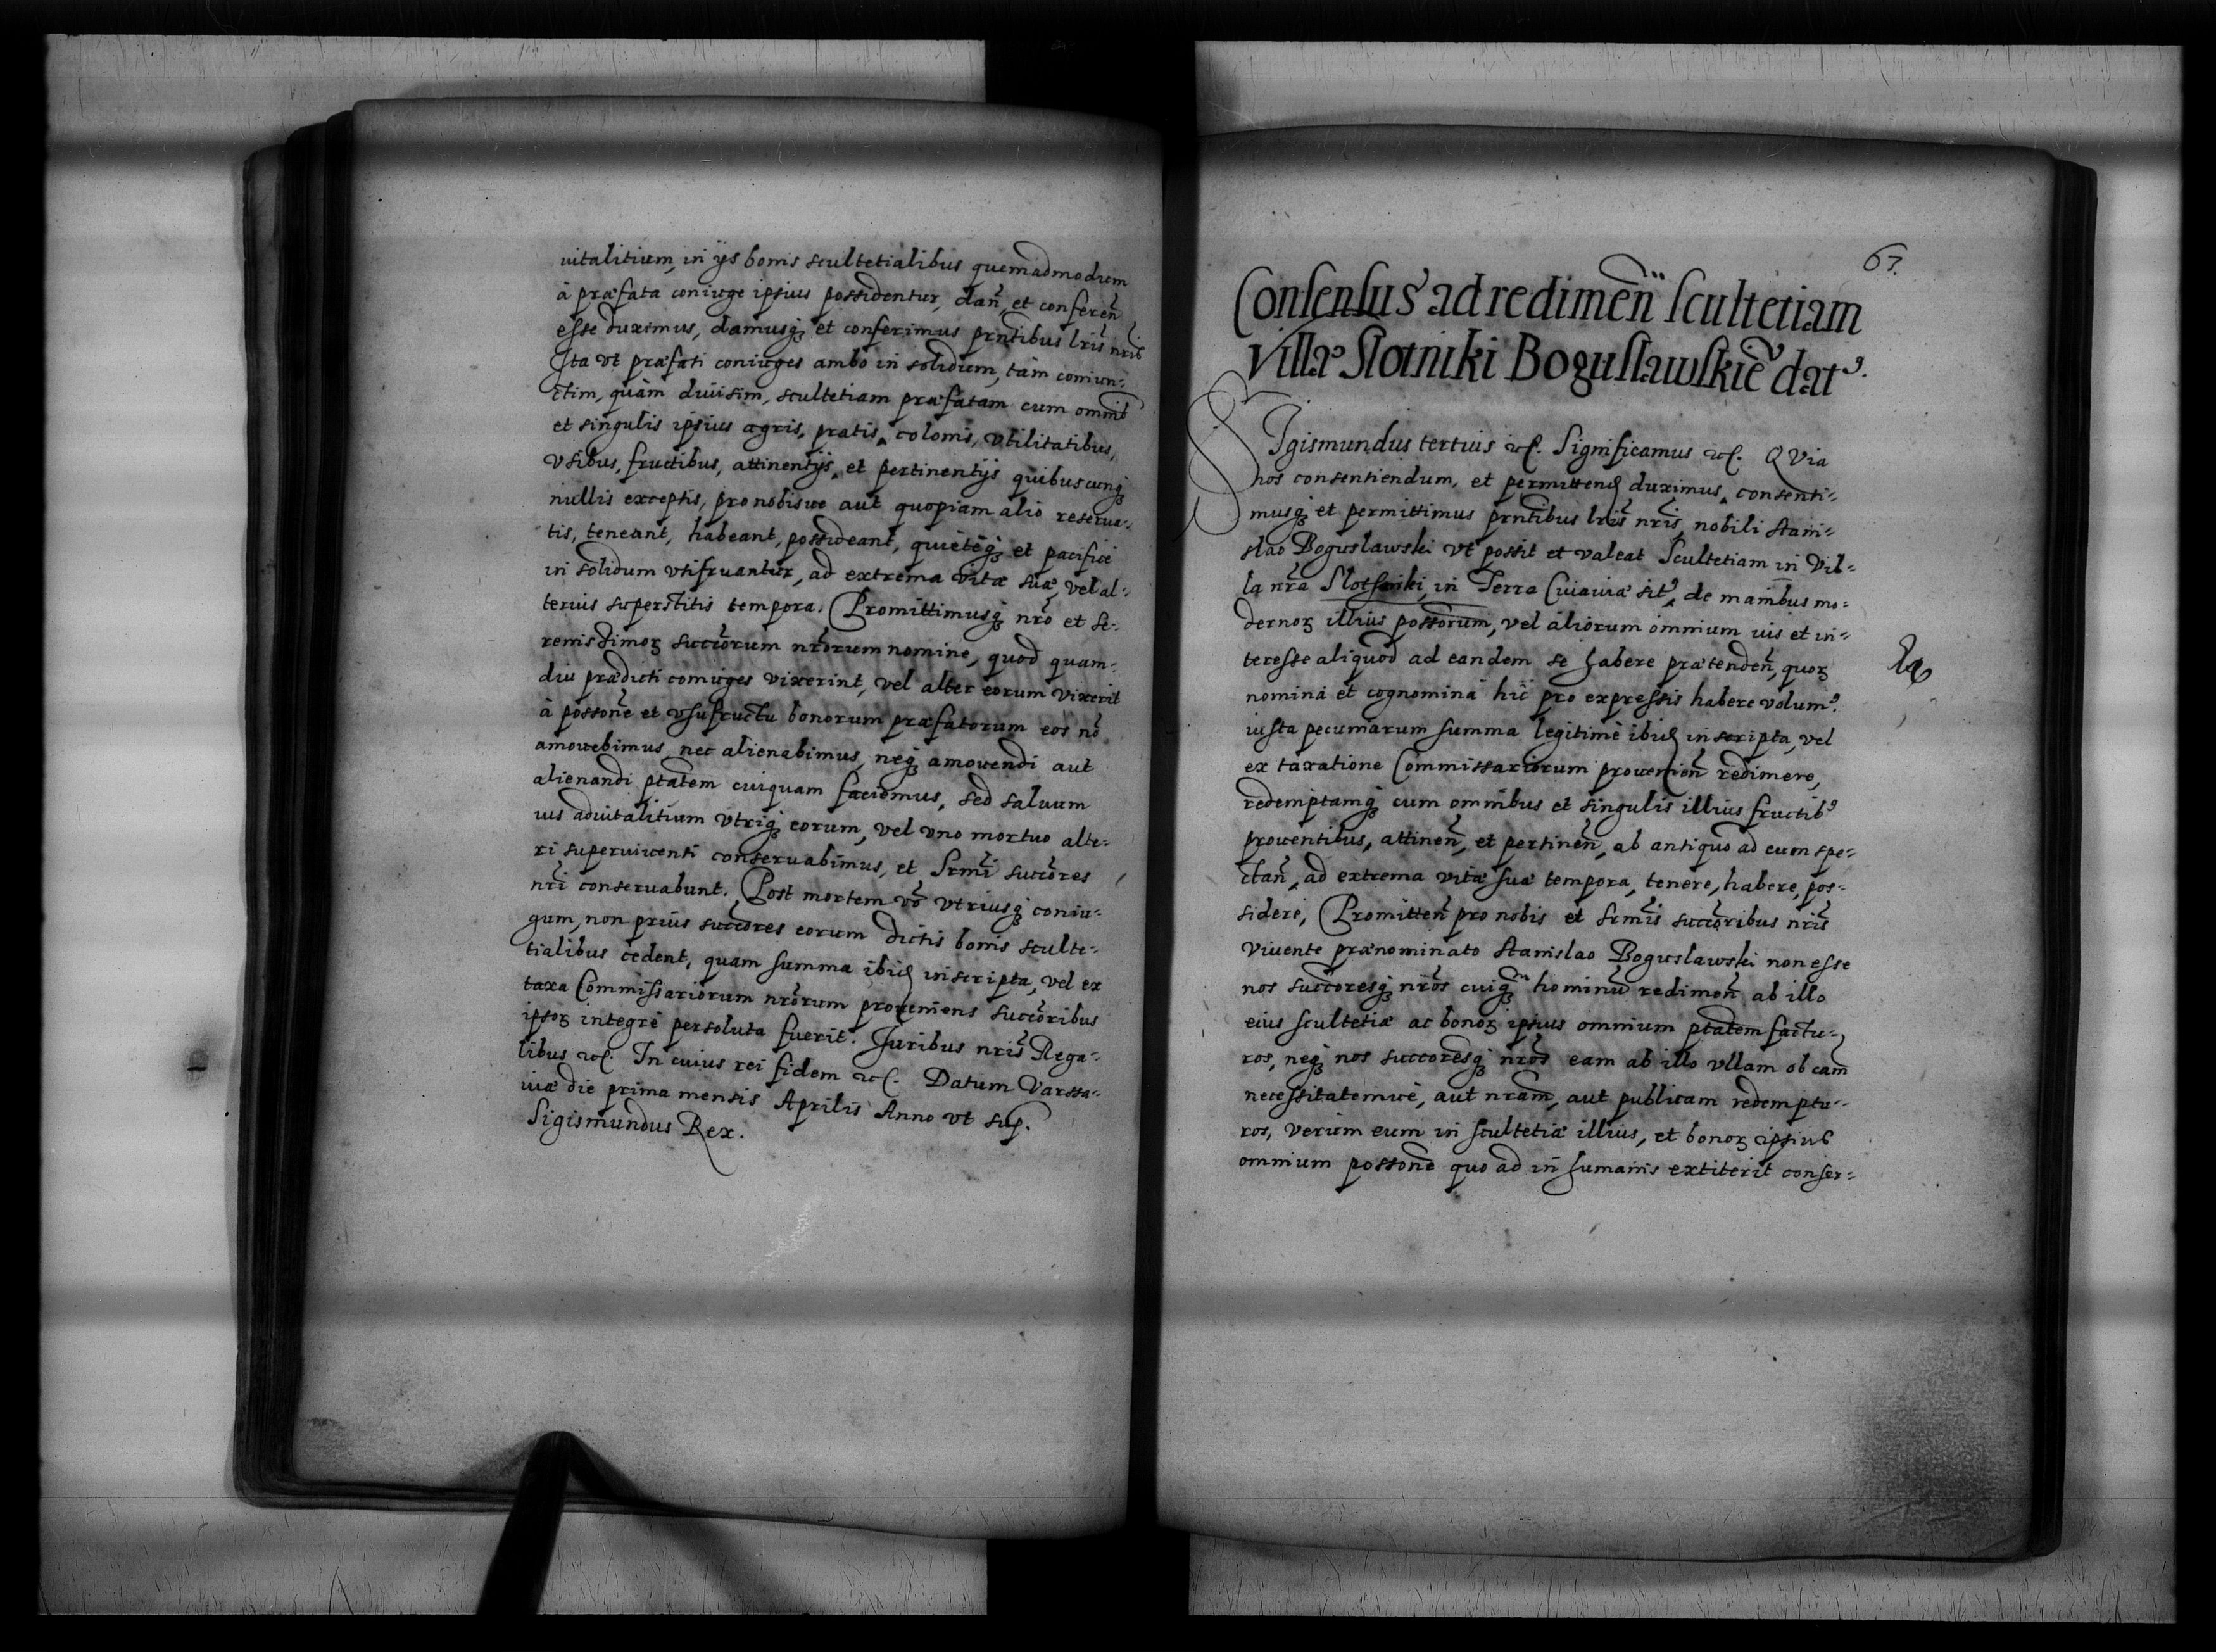 uitalitium, in ijs bonis scultetialibus quemadmodum
à præfata coniuge ipsius possidentur, dañ, et confereñ
esse duximus, damusq; et conferimus prñtibus lrĩs nrĩs
Ita vt præfati coniuges ambo in solidum, tàm coniun=
ctim, quàm diuisim, scultetiam præfatam cum omnib
et singulis ipsius agris, pratis, colonis, vtilitatibus,
vsibus, fructibus, attinentijs, et pertinentijs quibuscunq;
nullis exceptis, pro nobisue aut quopiam alio reserua=
tis, teneant, habeant, possideant, quietéq; et pacificè
in solidum vtifruantur, ad extrema vitæ suæ, vel al=
terius superstitis tempora. Promittimusq; nrõ et se=
renissimoꝝ succõrum nrõrum nomine, quod quam=
diu prædicti coniuges vixerint, vel alter eorum vixerit
à possonẽ et vsufructu bonorum præfatorum eos nõ
amouebimus nec alienabimus, neq; amouendi aut
alienandi ptãtem cuiquam faciemus, sed saluum
ius aduitalitium vtriq; eorum, vel vno mortuo alte=
ri superuiuenti conseruabimus, et Srmĩ succõres
nrĩ conseruabunt. Post mortem võ vtriusq; coniu=
gum, non priùs succõres eorum dictis bonis sculte=
tialibus cedent, quam summa ibid inscripta, vel ex
taxa Commissariorum nrõrum proueniens succõribus
ipsoꝝ integrè persoluta fuerit. Juribus nrĩs Rega=
libus etc. In cuius rei fidem etc. Datum Varssa=
uiæ die prima mensis Aprilis Anno vt sup.
Sigismundus Rex.
63.
Consensus ad redimeñ scultetiam
Villæ Slotniki Boguslawskiẽ datꝰ.
SIgismundus tertius etc. Significamus etc. QVia
nos consentiendum, et permittend duximus, consenti=
musq; et permittimus prñtibus lrĩs nrĩs, nobili Stani=
slao Boguslawski vt possit et valeat Scultetiam in Vil=
la nrã Slotsniki, in Terra Cuiauiæ sitꝰ, de manĩbus mo=
dernoꝝ illius possõrum, vel aliorum omnium ius et in=
teresse aliquod ad eandem se habere prætendeñ, quoꝝ
nomina et cognomina hìc pro expressis habere volumꝰ.
iusta pecuniarum summa legitimè ibid inscripta, vel
ex taxatione Commissariorum prouenieñ redimere,
redemptamq; cum omnibus et singulis illius fructibꝰ
prouentibus, attineñ, et pertineñ, ab antiquo ad eum spe=
ctañ, ad extrema vitæ suæ tempora, tenere, habere, pos=
sidere, Promitteñ pro nobis et srmĩs succõribus nrĩs
viuente prænominato Stanislao Boguslawski non esse
nos succõresq; nrõs cuiq;m hominũ redimeñ ab illo
eius scultetiæ ac bonoꝝ ipsius omnium ptãtem factu=
ros, neq; nos succõresq; nrõs eam ab illo vllam ob cam̃
necessitatemuè, aut nrãm, aut publicam redemptu=
ros, verùm eum in scultetiæ illius, et bonoꝝ ipsius
omnium possonẽ quo ad iñ humanis extiterit conser=